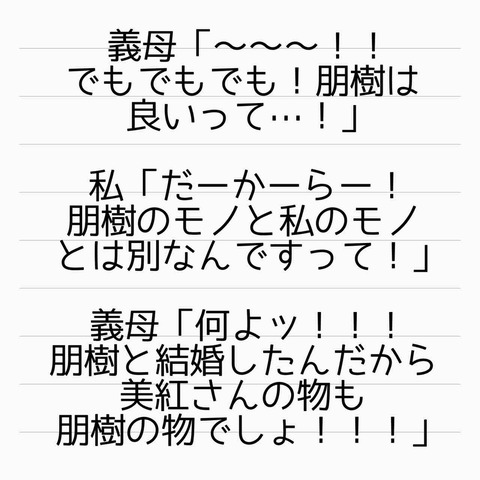 義母「〜〜〜！！
でもでもでも！朋樹は
良いって…！」
私「だーかーらー！
朋樹のモノと私のモノ
とは別なんですって！」
義母「何よッ！！！
朋樹と結婚したんだから
美紅さんの物も
朋樹の物でしょ！！！」